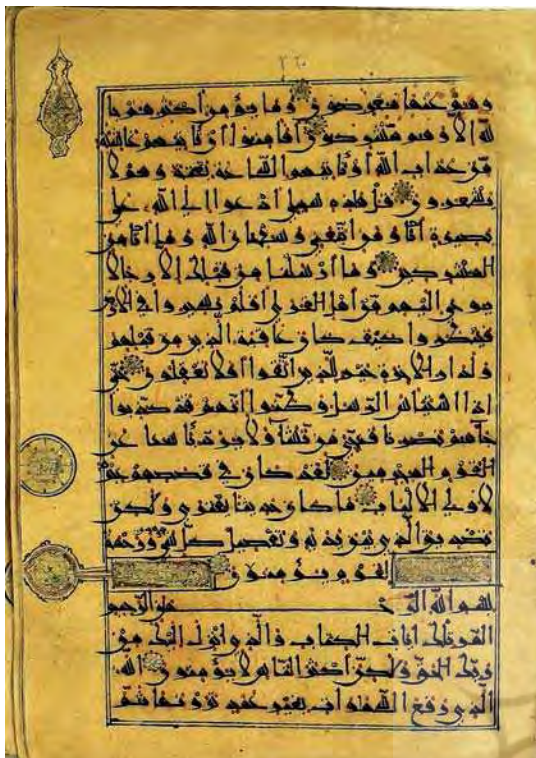 وهم عنها معرضون وما يؤمن أكثرهم با
لله إلا وهم مشركون أفأمنوا أن تأتيهم غاشية
من عذاب الله أو تأتيهم الساعة بغتة وهم لا
يشعرون قل هذه سبيلي أدعوا إلى الله على
بصيرة أنا ومن اتبعني وسبحان الله وما أنا من
المشركين وما أرسلنا من قبلك إلا رجالا
يوحى إليهم من أهل القرى أفلم يسيروا في الأرض
فينظروا كيف كان عاقبة الذين من قبلهم
ولدار الآخرة خير للذين اتقوا أفلا تعقلون حتى
إذا استيأس الرسل وظنوا أنهم قد كذبوا
جاءهم نصرنا فنجي من نشاء ولا يرد بأسنا عن
القوم المجرمين لقد كان في قصصهم عبرة
لأولي الألباب ما كان حديثا يفترى ولكن
تصديق الذي بين يديه وتفصيل كل شيء ورحمة
لقوم يؤمنون
بسم الله الرحمن الرحيم
المر تلك آيات الكتاب والذي أنزل إليك من
ربك الحق ولكن أكثر الناس لا يؤمنون الله
الذي رفع السموات بغير عمد ترونها ثم